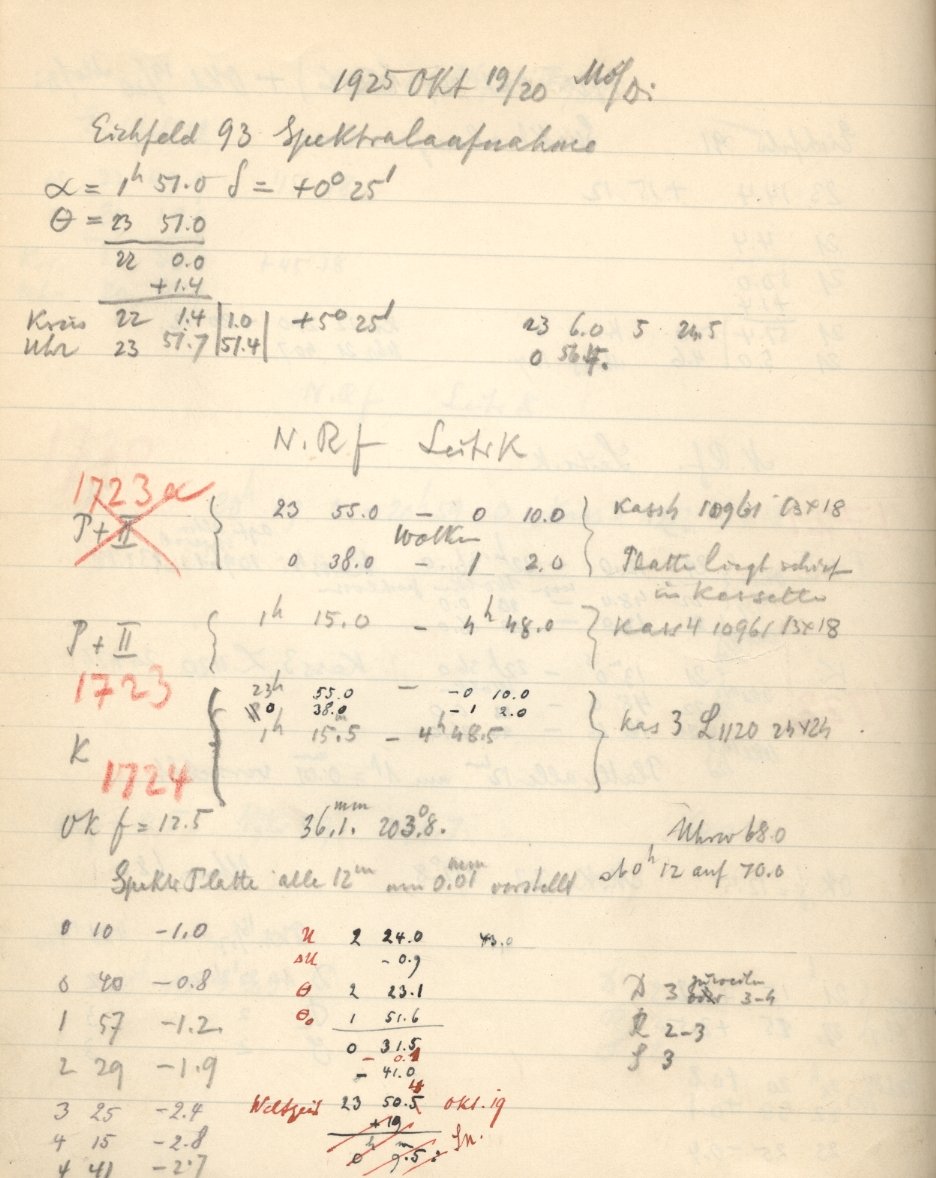 1925 Okt 19/20 Mo/Di
Eichfeld 93 Spektralaufnahme
α = 1h 51.0 δ = +0° 25'
θ = 23 51.0
22 0.0
+1.4
Kreis 22 1.4 | 1.0 | +5° 25' 23 6.0 5 24.5
Uhr 23 51.7 | 51.4 | 0
N. Rf Leitr K
1723a
P + II { 23 55.0 – 0 10.0 } Kass 4 10961 13×18
Wolken
0 38.0 – 1 2.0 Platte liegt schief
in Kassette
P + II { 1h 15.0 – 4h 48.0 } Kass 4 10961 13×18
1723
23h 55.0 – 0 10.0
0 38.0 – 1 2.0
K { 1h 15.5 – 4h 48.5 } Kas 3 L1120 24×24
1724
OK f = 12.5 36.1 mm 203°.8. Uhrw 68.0
Spektr Platte alle 12m um 0.01 mm verstellt ab 0h 12 auf 70.0
0 10 -1.0
0 40 -0.8
1 57 -1.2
2 29 -1.9
3 25 -2.4
4 15 -2.8
4 41 -2.7
U 2 24.0 43.0
ΔU -0.9
θ 2 23.1
θ₀ 1 51.6
0 31.5
- 0.1
- 41.0
Weltzeit 23 50.4 Okt. 19
+19
0h 9.5 Sn.
D 3 zuweilen
3-4
R 2-3
S 3